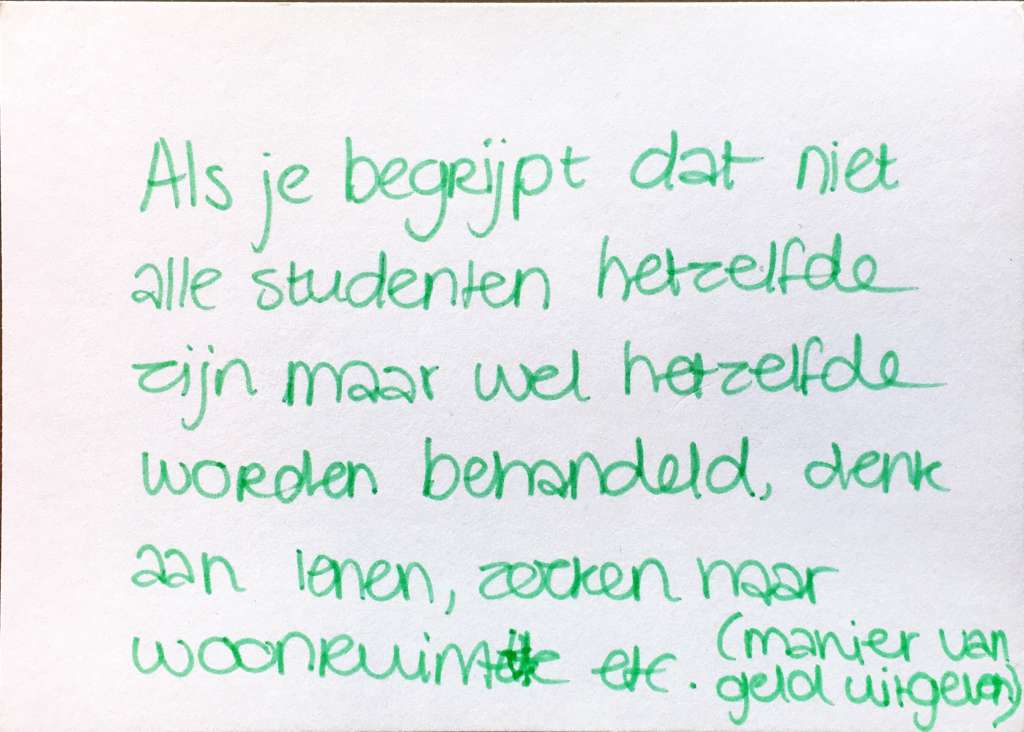 Als je begrijpt dat niet
alle studenten hetzelfde
zijn maar wel hetzelfde
worden behandeld, denk
aan lenen, zoeken naar
woonruimte etc. (manier van
geld uitgeven)